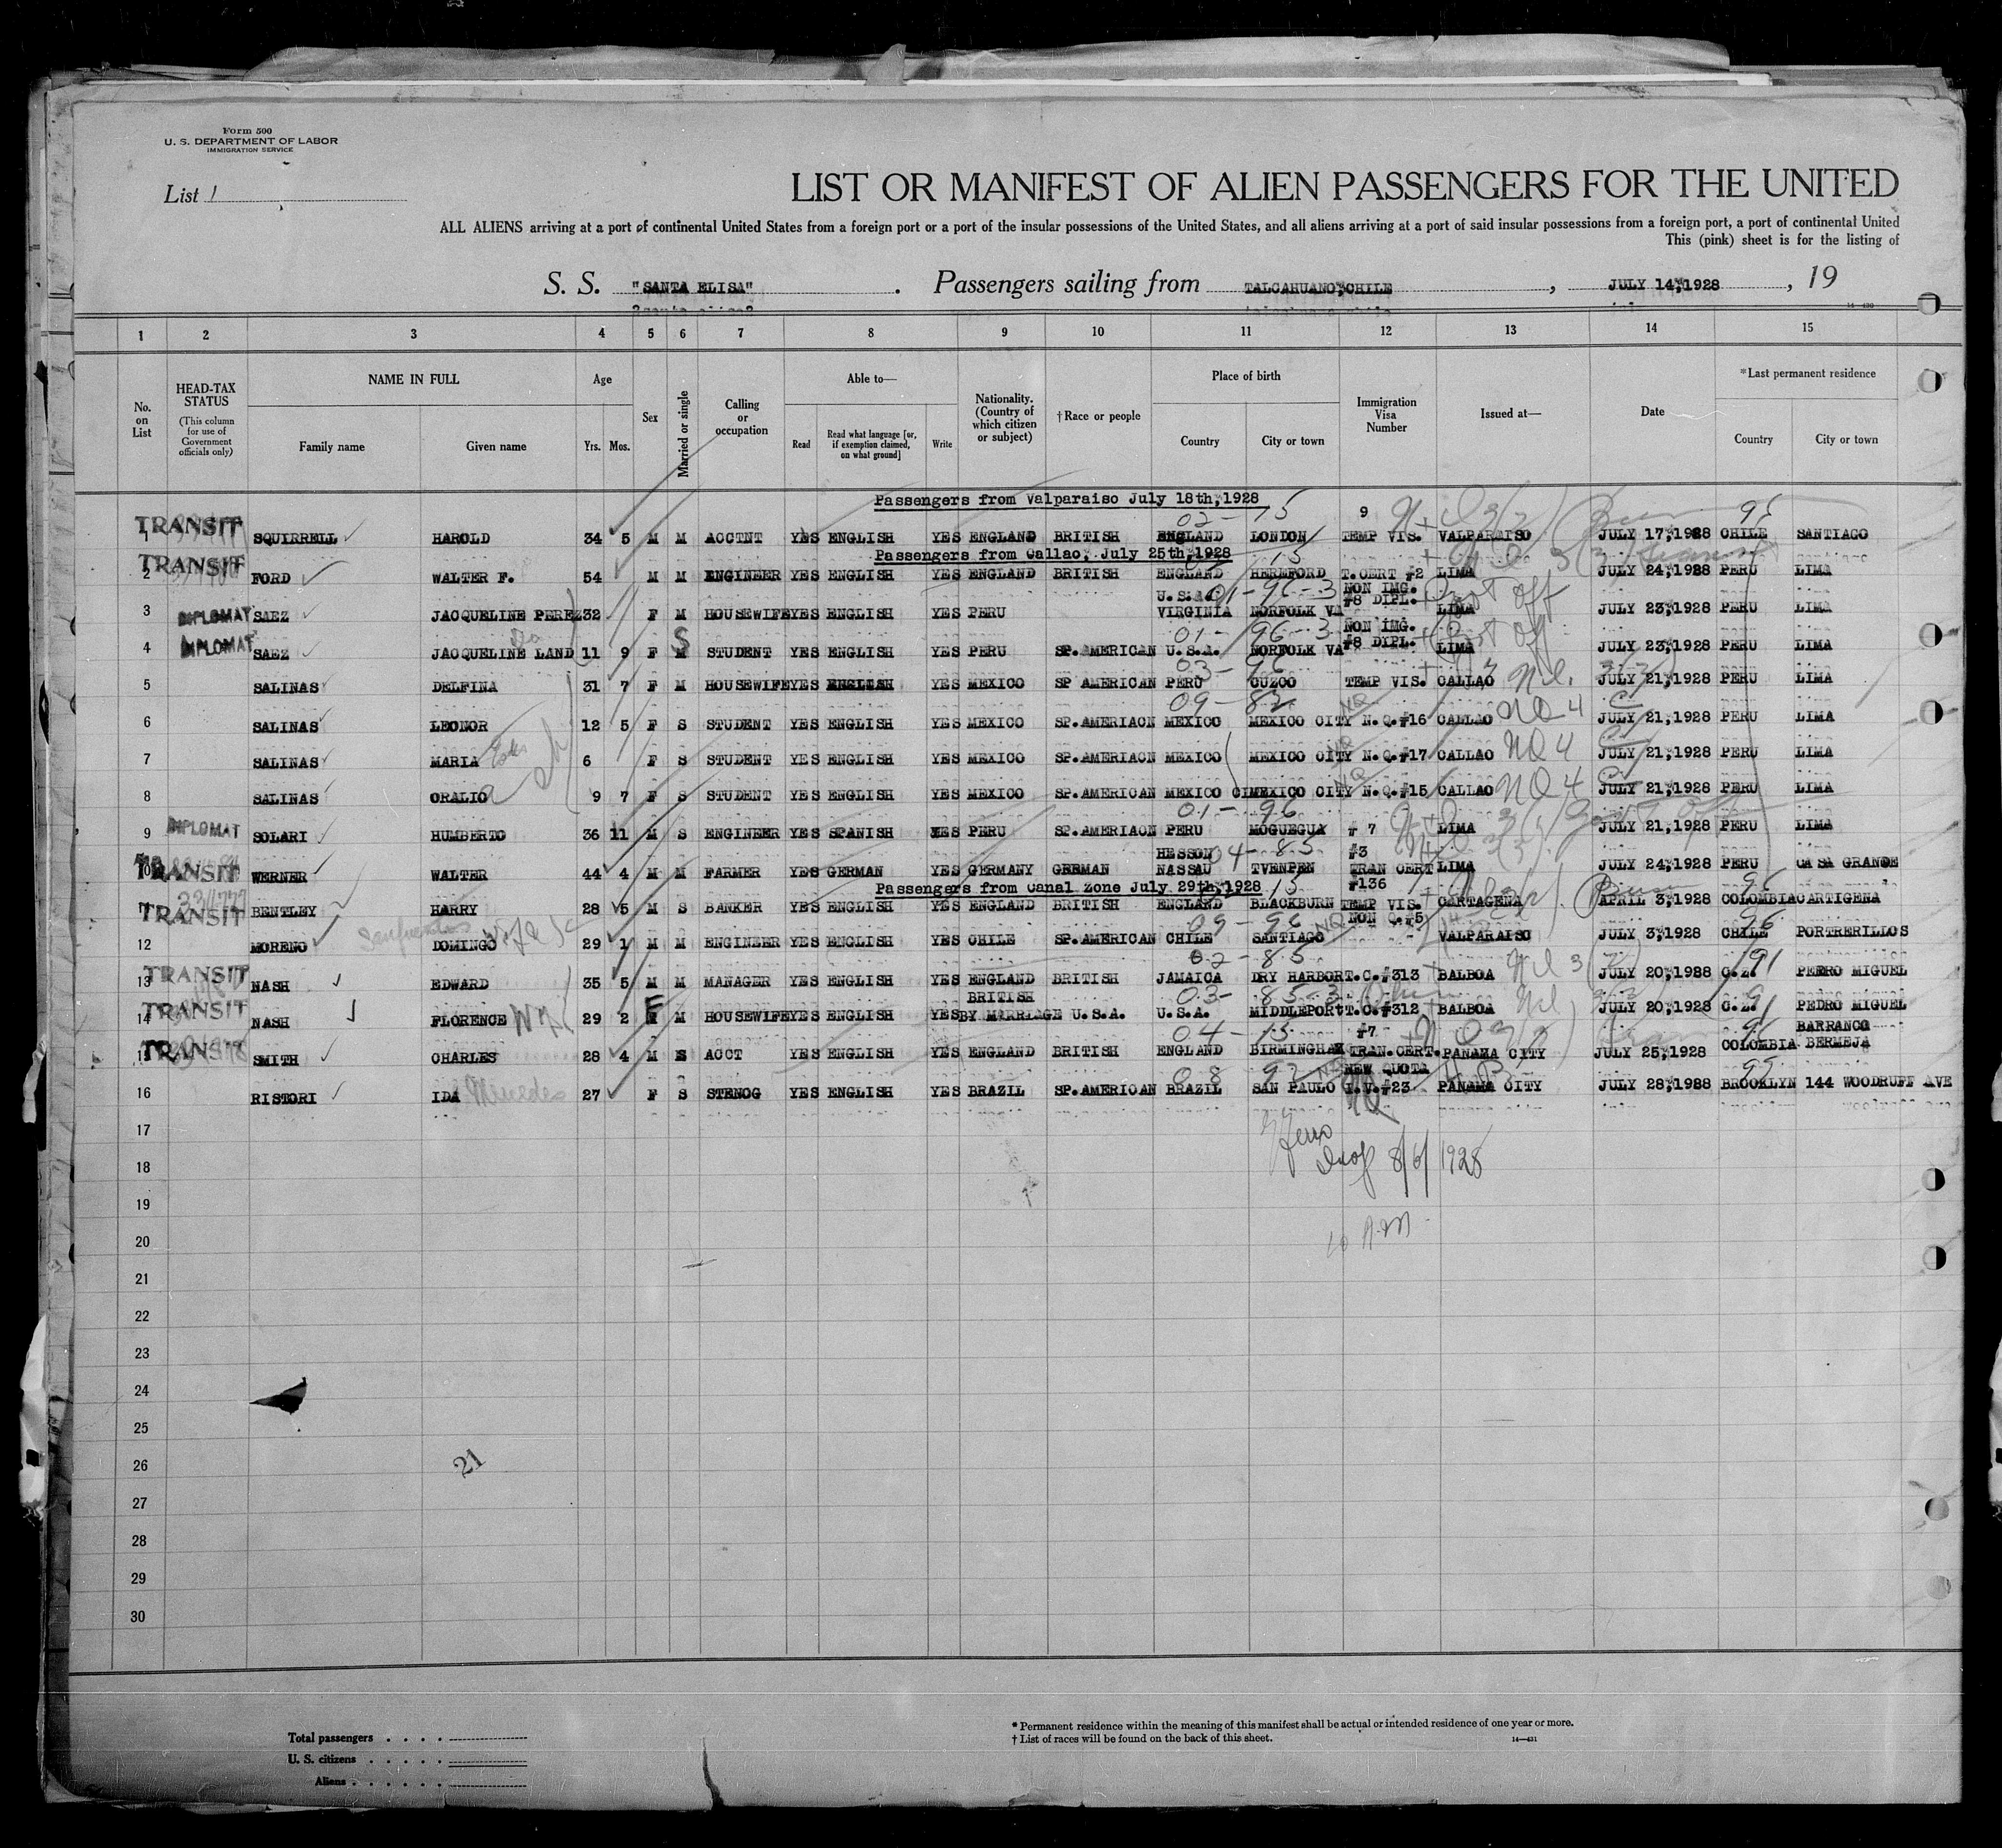 Form 500
U. S. DEPARTMENT OF LABOR
IMMIGRATION SERVICE
List 1
LIST OR MANIFEST OF ALIEN PASSENGERS FOR THE UNITED
ALL ALIENS arriving at a port of continental United States from a foreign port or a port of the insular possessions of the United States, and all aliens arriving at a port of said insular possessions from a foreign port, a port of continental United
This (pink) sheet is for the listing of
S. S. "SANTA ELISA" . Passengers sailing from TALCAHUANO,CHILE , JULY 14,1928 , 19
1 2 3 4 5 6 7 8 9 10 11 12 13 14 15
No. on List
HEAD-TAX STATUS
(This column for use of Government officials only)
NAME IN FULL
Family name Given name
Age
Yrs. Mos.
Sex
Married or single
Calling or occupation
Able to—
Read Read what language [or, if exemption claimed, on what ground] Write
Nationality. (Country of which citizen or subject)
†Race or people
Place of birth
Country City or town
Immigration Visa Number
Issued at—
Date
*Last permanent residence
Country City or town
Passengers from Valparaiso July 18th,1928
02-15 9 95
TRANSIT 1 SQUIRRELL HAROLD 34 5 M M ACCTNT YES ENGLISH YES ENGLAND BRITISH ENGLAND LONDON TEMP VIS. VALPARAISO JULY 17,1928 CHILE SANTIAGO
Passengers from Callao, July 25th,1928
TRANSIT 2 FORD WALTER F. 54 M M ENGINEER YES ENGLISH YES ENGLAND BRITISH ENGLAND HEREFORD T.CERT #2 LIMA JULY 24,1928 PERU LIMA
U.S.A. 01-96-3 NON IMG.
3 DIPLOMAT SAEZ JACQUELINE PEREZ 32 F M HOUSEWIFE YES ENGLISH YES PERU VIRGINIA NORFOLK VA #8 DIPL. LIMA JULY 23,1928 PERU LIMA
01-96-3 NON IMG.
4 DIPLOMAT SAEZ JACQUELINE LAND 11 9 F S STUDENT YES ENGLISH YES PERU SP.AMERICAN U.S.A. NORFOLK VA #8 DIPL. LIMA JULY 23,1928 PERU LIMA
03-96
5 SALINAS DELFINA 31 7 F M HOUSEWIFE YES ENGLISH YES MEXICO SP AMERICAN PERU CUZCO TEMP VIS. CALLAO JULY 21,1928 PERU LIMA
09-82
6 SALINAS LEONOR 12 5 F S STUDENT YES ENGLISH YES MEXICO SP.AMERIACN MEXICO MEXICO CITY N.Q.#16 CALLAO NQ 4 JULY 21,1928 PERU LIMA
7 SALINAS MARIA 6 F S STUDENT YES ENGLISH YES MEXICO SP.AMERIACN MEXICO MEXICO CITY N.Q.#17 CALLAO NQ 4 JULY 21,1928 PERU LIMA
8 SALINAS ORALIO 9 7 F S STUDENT YES ENGLISH YES MEXICO SP.AMERICAN MEXICO CI MEXICO CITY N.Q.#15 CALLAO NQ 4 JULY 21,1928 PERU LIMA
01-96
9 DIPLOMAT SOLARI HUMBERTO 36 11 M S ENGINEER YES SPANISH YES PERU SP.AMERIACN PERU MOGUEGUA # 7 LIMA JULY 21,1928 PERU LIMA
HESSON 04-85 #3
TRANSIT 10 WERNER WALTER 44 4 M M FARMER YES GERMAN YES GERMANY GERMAN NASSAU TVENPEN TRAN CERT LIMA JULY 24,1928 PERU CASA GRANDE
Passengers from Canal Zone July 29th,1928 15 #136
TRANSIT BENTLEY HARRY 28 5 M S BANKER YES ENGLISH YES ENGLAND BRITISH ENGLAND BLACKBURN TEMP VIS. CARTAGENA APRIL 3,1928 COLOMBIA CARTIGENA
09-96 NON Q.#5 96
12 MORENO DOMINGO 29 1 M M ENGINEER YES ENGLISH YES CHILE SP.AMERICAN CHILE SANTIAGO VALPARAISO JULY 3,1928 CHILE PORTRERILLOS
02-85
TRANSIT 13 NASH EDWARD 35 5 M M MANAGER YES ENGLISH YES ENGLAND BRITISH JAMAICA DRY HARBOR T.C.#313 BALBOA JULY 20,1928 C.Z. PEDRO MIGUEL
BRITISH 03-85-3
TRANSIT 14 NASH FLORENCE 29 2 F M HOUSEWIFE YES ENGLISH YES BY MARRIAGE U.S.A. U.S.A. MIDDLEPORT T.C.#312 BALBOA JULY 20,1928 C.Z. PEDRO MIGUEL
04-15 #7 BARRANCO
TRANSIT 15 SMITH CHARLES 28 4 M S ACCT YES ENGLISH YES ENGLAND BRITISH ENGLAND BIRMINGHAM TRAN.CERT. PANAMA CITY JULY 25,1928 COLOMBIA BERMEJA
08-92 NEW QUOTA 95
16 RISTORI IDA 27 F S STENOG YES ENGLISH YES BRAZIL SP.AMERICAN BRAZIL SAN PAULO I.V.#23 PANAMA CITY JULY 28,1928 BROOKLYN 144 WOODRUFF AVE
17
8/6/1928
18
19
20
10 A.M.
21
22
23
24
25
26
21
27
28
29
30
Total passengers . . . .
U. S. citizens . . . . .
Aliens . . . . . .
* Permanent residence within the meaning of this manifest shall be actual or intended residence of one year or more.
† List of races will be found on the back of this sheet.
14—421